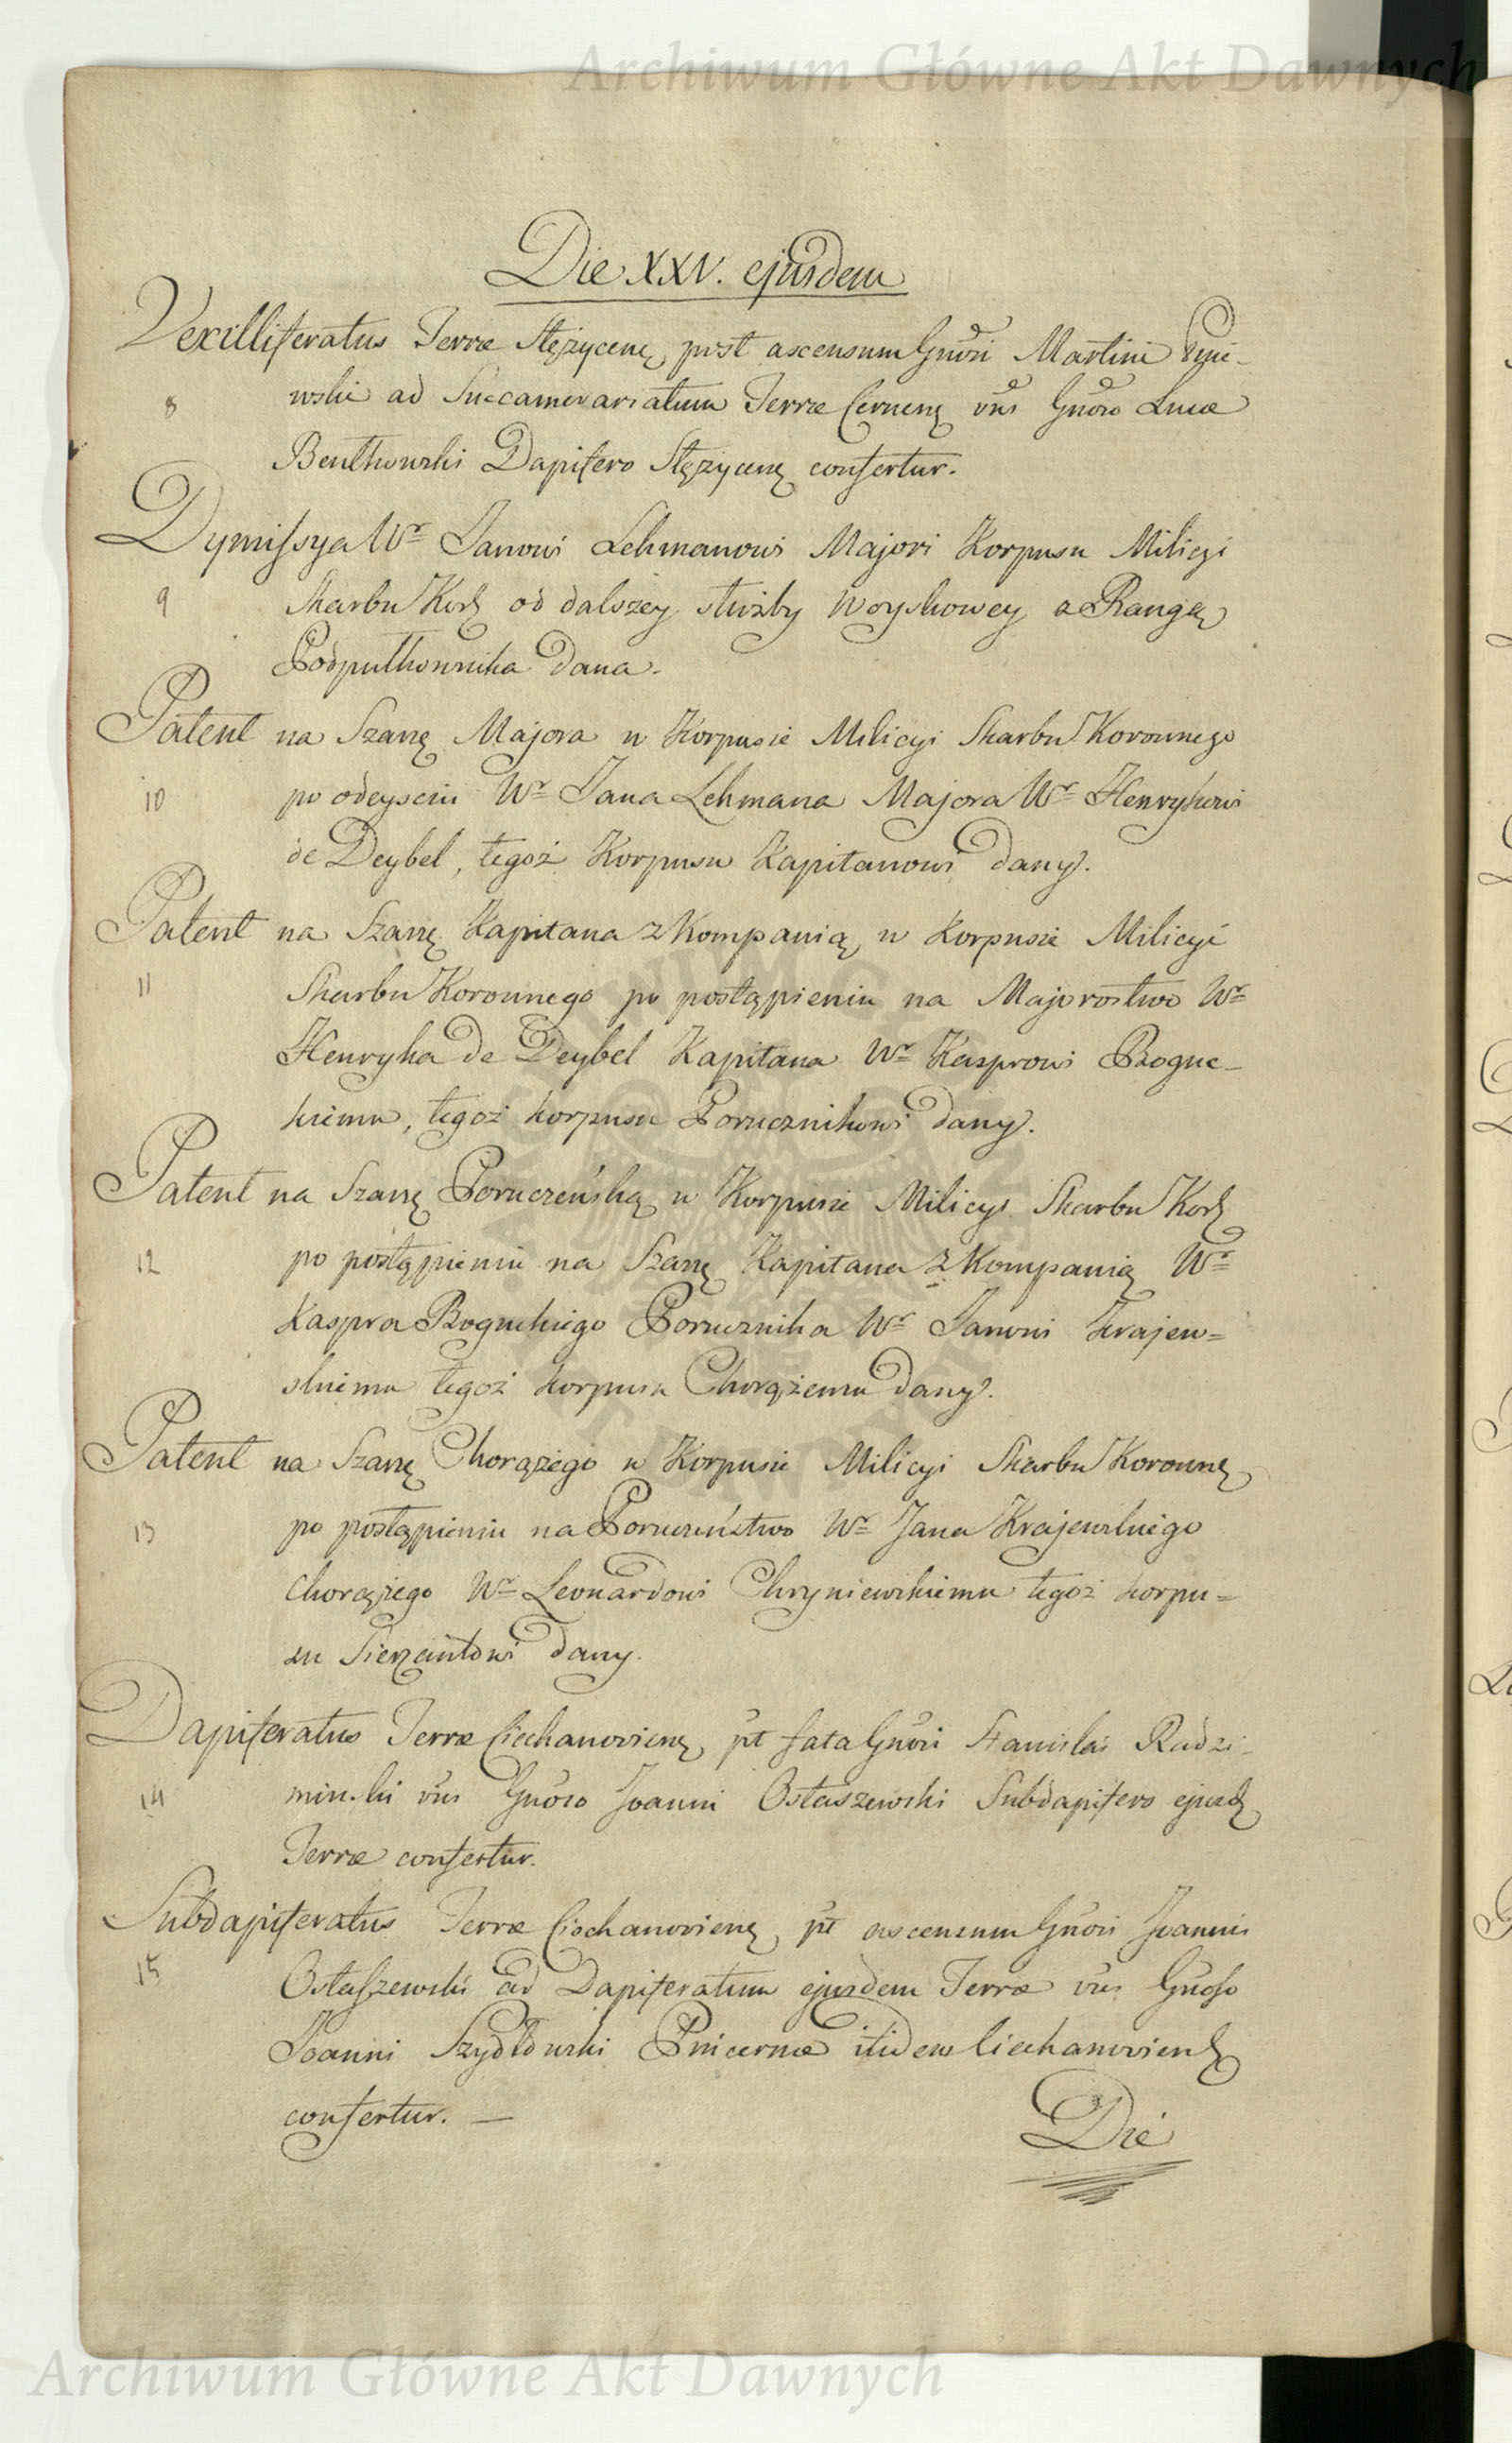 Archiwum Główne Akt Dawnych
Die XXV. ejusdem
Vexilliferatus Terræ Stężycenę post ascensum Gnõri Martini
8 wski ad Succamerariatum Terræ Cernenę vũs Gnõso Lucæ
Benthowski Dapifero Stężycenę confertur.
Dymissya Wr Janowi Lehmanowi Majori Korpusu Milicyi
9 Skarbu Kor od dalszey służby Woyskowey z Rangą
Podpułkownika dana.
Patent na Szarżę Majora w Korpusie Milicyi Skarbu Koronnego
10 po odeysciu Wr Jana Lehmana Majora Wr Henrykowi
de Deybel, tegoż Korpusu Kapitanowi dany.
Patent na Szarżę Kapitana z Kompanią w Korpusie Milicyi
11 Skarbu Koronnego po postąpieniu na Majorostwo Wr
Henryka de Deybel Kapitana Wr Kasprowi Boguc-
kiemu, tegoż korpusu Porucznikowi dany.
Patent na Szarżę Poruczeńską w Korpusie Milicyi Skarbu Kor
12 po postąpieniu na Szarżę Kapitana z Kompanią Wr
Kaspra Boguckiego Porucznika Wr Janowi Krajew=
skiemu tegoż korpusu Chorążemu dany.
Patent na Szarżę Chorążego w Korpusie Milicyi Skarbu Koronnę
13 po postąpieniu na Poruczeństwo Wr Jana Krajewskiego
Chorążego Wr Leonardowi Chryniewskiemu tegoż korpu=
su Sierżantowi dany.
Dapiferatus Terræ Ciechanoviensę pt fata Gnõri Stanislai Radzi-
14 minski vũs Gnõso Joanni Ostaszewski Subdapifero ejusd
Terræ confertur.
Subdapiferatus Terræ Ciechanoviensę pt ascensum Gnõri Joannis
15 Ostaszewski ad Dapiferatum ejusdem Terræ vũs Gnõso
Joanni Szydłowski Pincernæ itidem Ciechanoviens
confertur. —
Die
Archiwum Główne Akt Dawnych